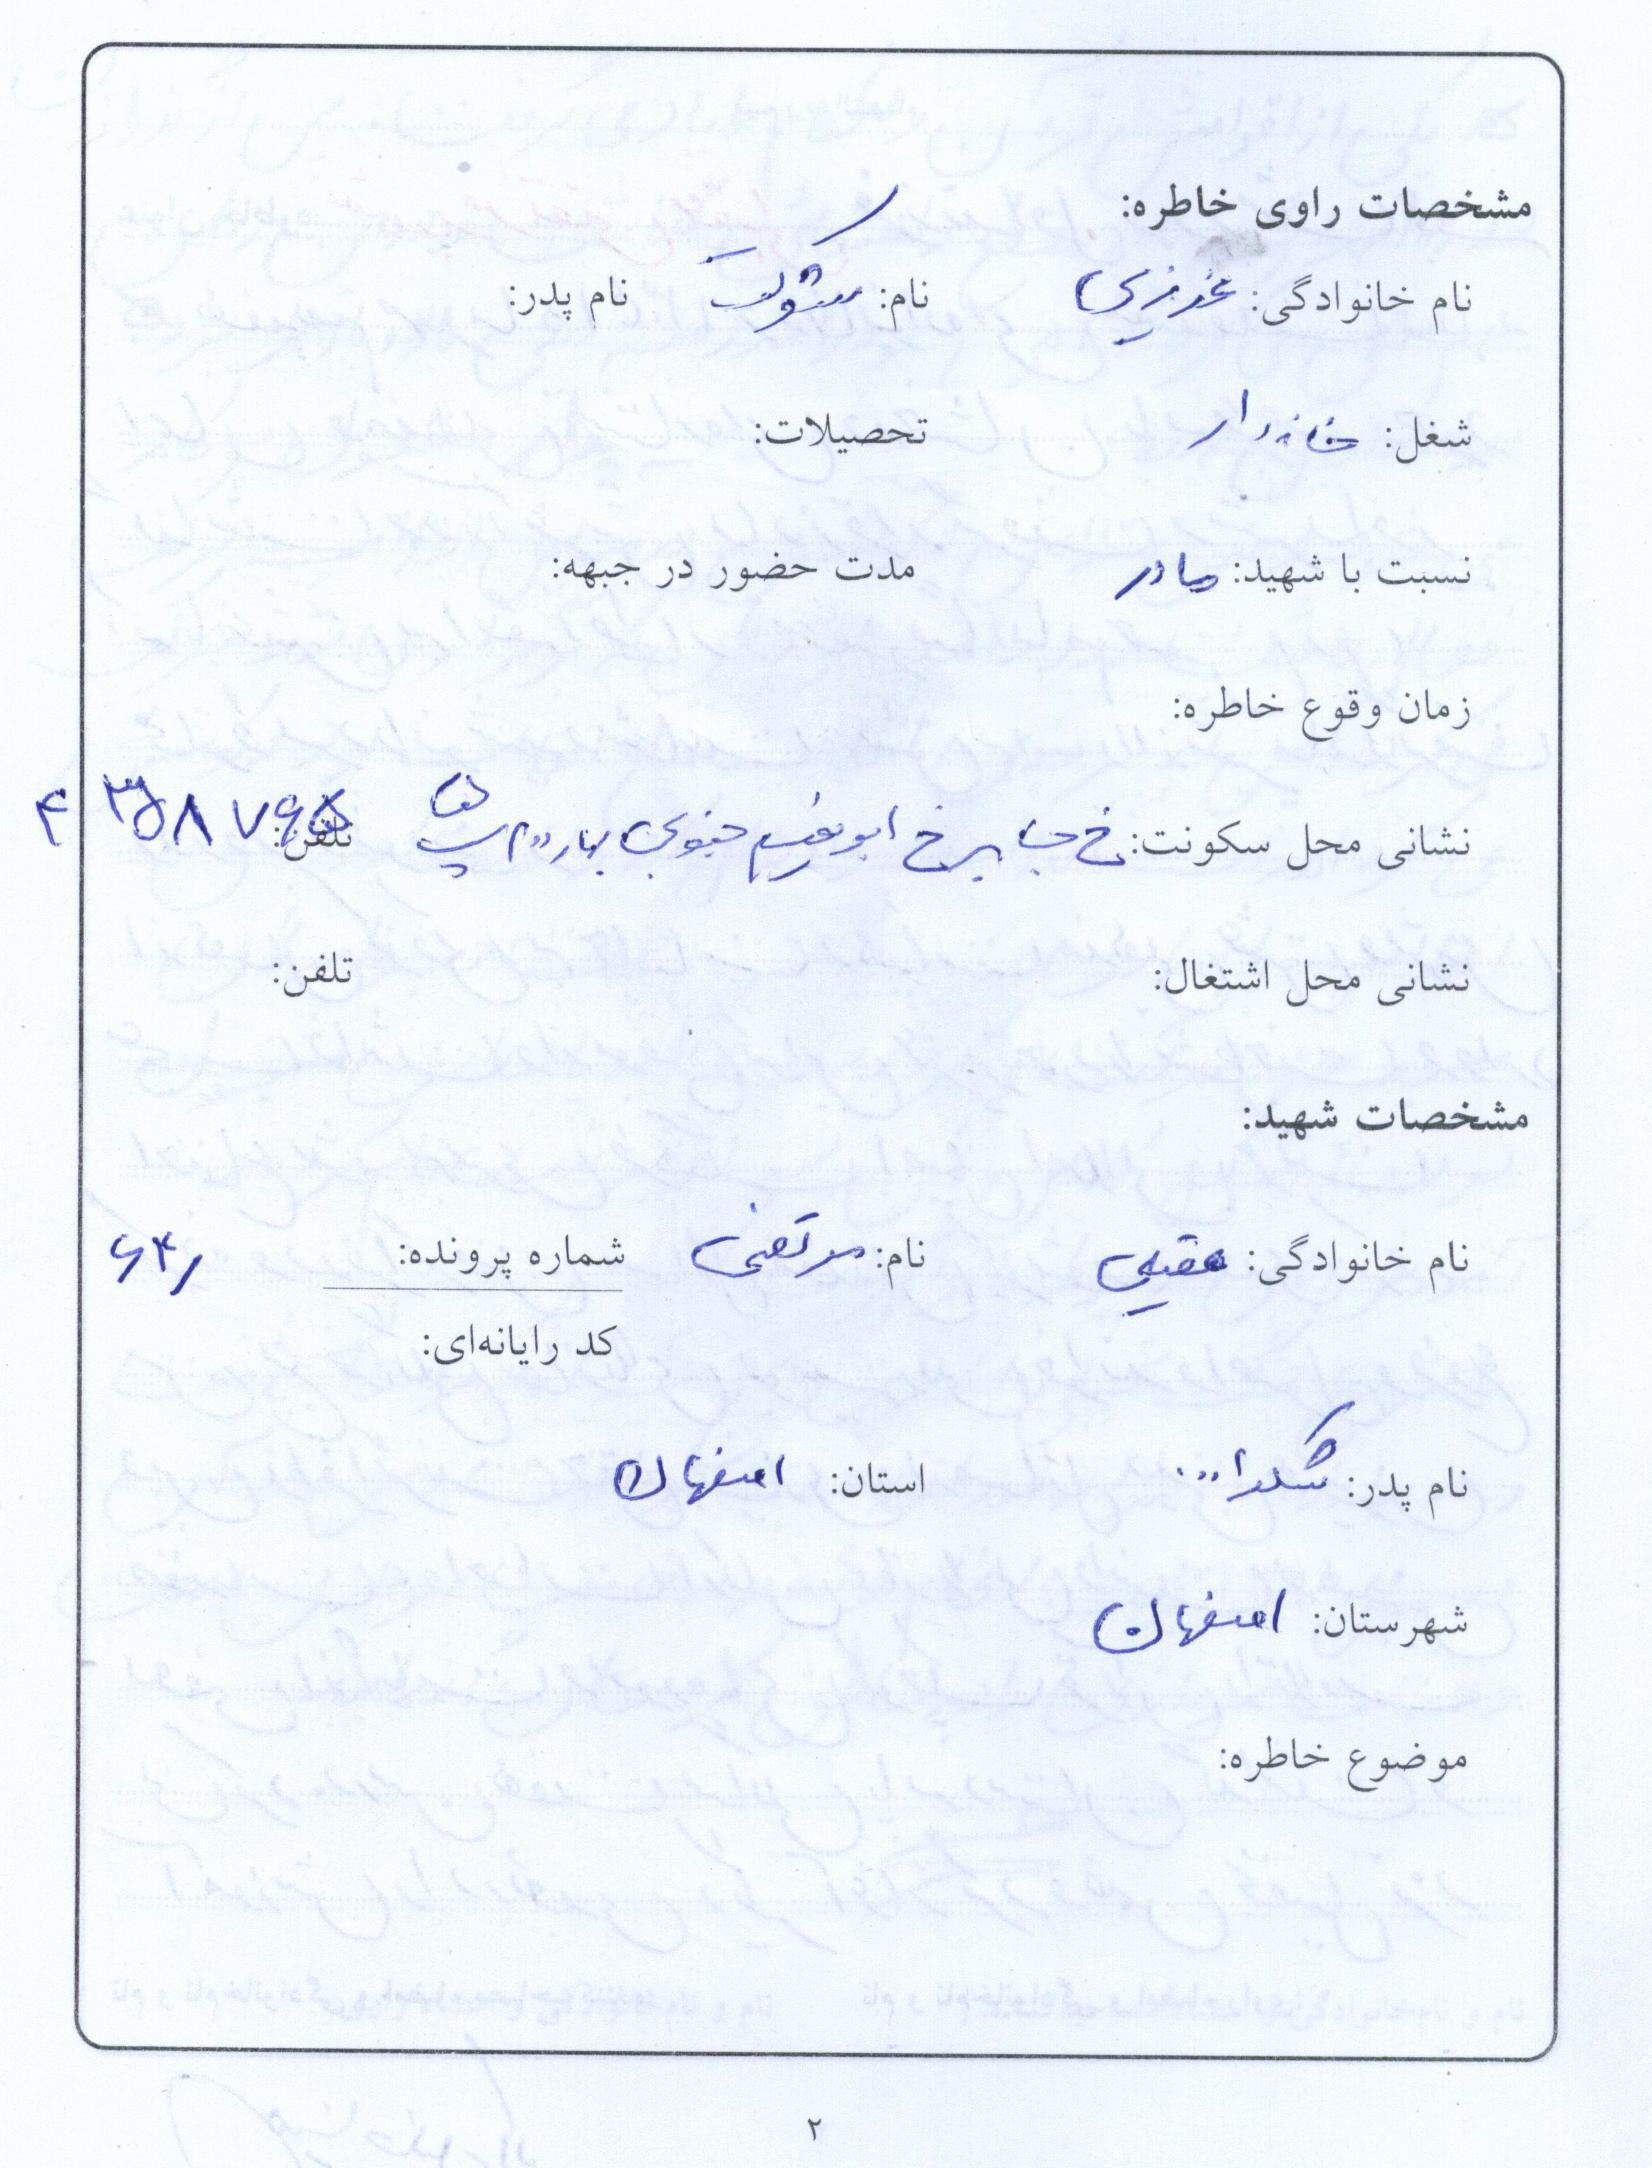 مشخصات راوی خاطره:
نام خانوادگی: عزیزی نام: شوکت نام پدر:
شغل: خانه دار تحصیلات:
نسبت با شهید: مادر مدت حضور در جبهه:
زمان وقوع خاطره:
نشانی محل سکونت: خ جابر خ ابونعیم جنوبی تلفن:
نشانی محل اشتغال: تلفن:
مشخصات شهید:
نام خانوادگی: نام: مرتضی شماره پرونده:
کد رایانه‌ای:
نام پدر: شکرا... استان: اصفهان
شهرستان: اصفهان
موضوع خاطره:
۲